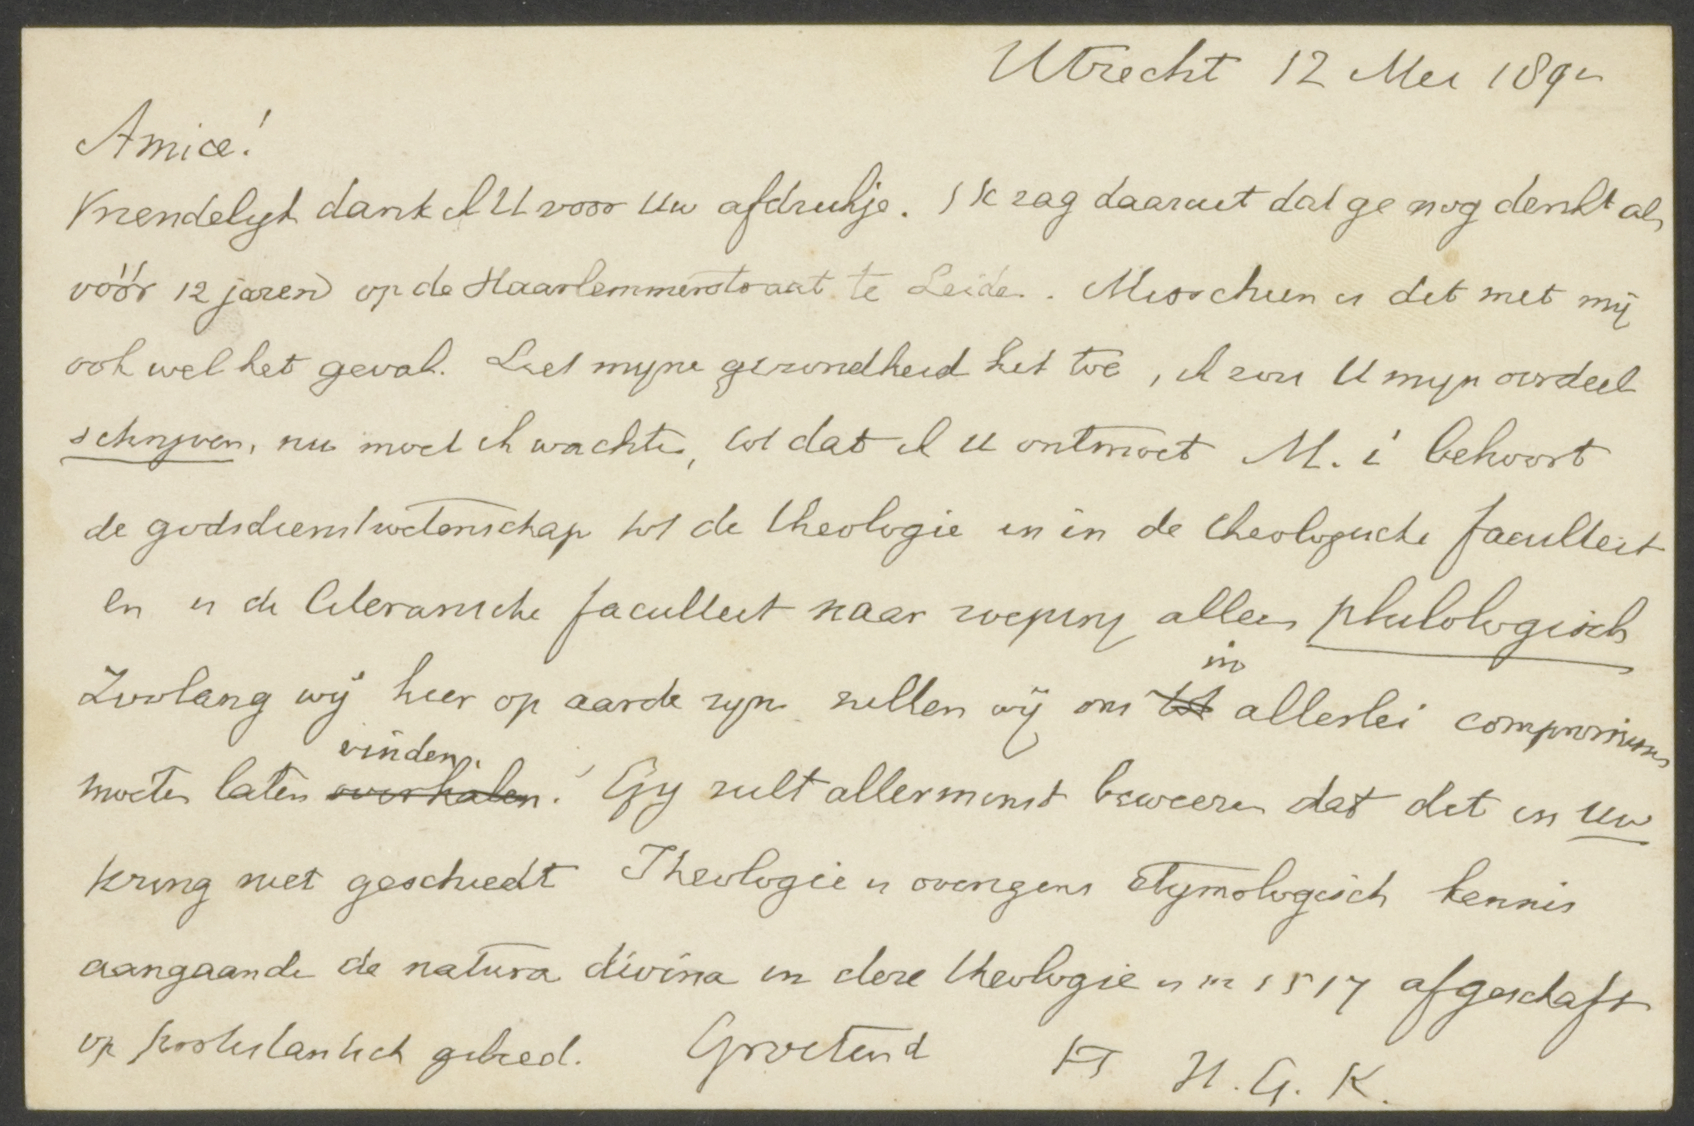 Utrecht 12 Mei 189
Amice!
Vriendelijk dank ik U voor Uw afdrukje. Ik zag daaruit dat ge nog denkt als
vóór 12 jaren op de Haarlemmerstraat te Leiden. Misschien is dit met mij
ook wel het geval. Liet mijne gezondheid het toe, ik zou U mijn oordeel
schrijven, nu moet ik wachten, tot dat ik U ontmoet M. i behoort
de godsdienstwetenschap tot de theologie en in de theologische faculteit
en is de literarische faculteit naar alleen philologisch
Zoolang wij hier op aarde zijn zullen wij ons in allerlei compromissen
moeten laten vinden. Gij zult allerminst beweeren dat dit in Uw
kring niet geschiedt Theologie is overigens etymologisch kennis
aangaande de natura divina en deze theologie is in 1517 afgeschaft
op protestantsch gebied. Groetend H. G. K.